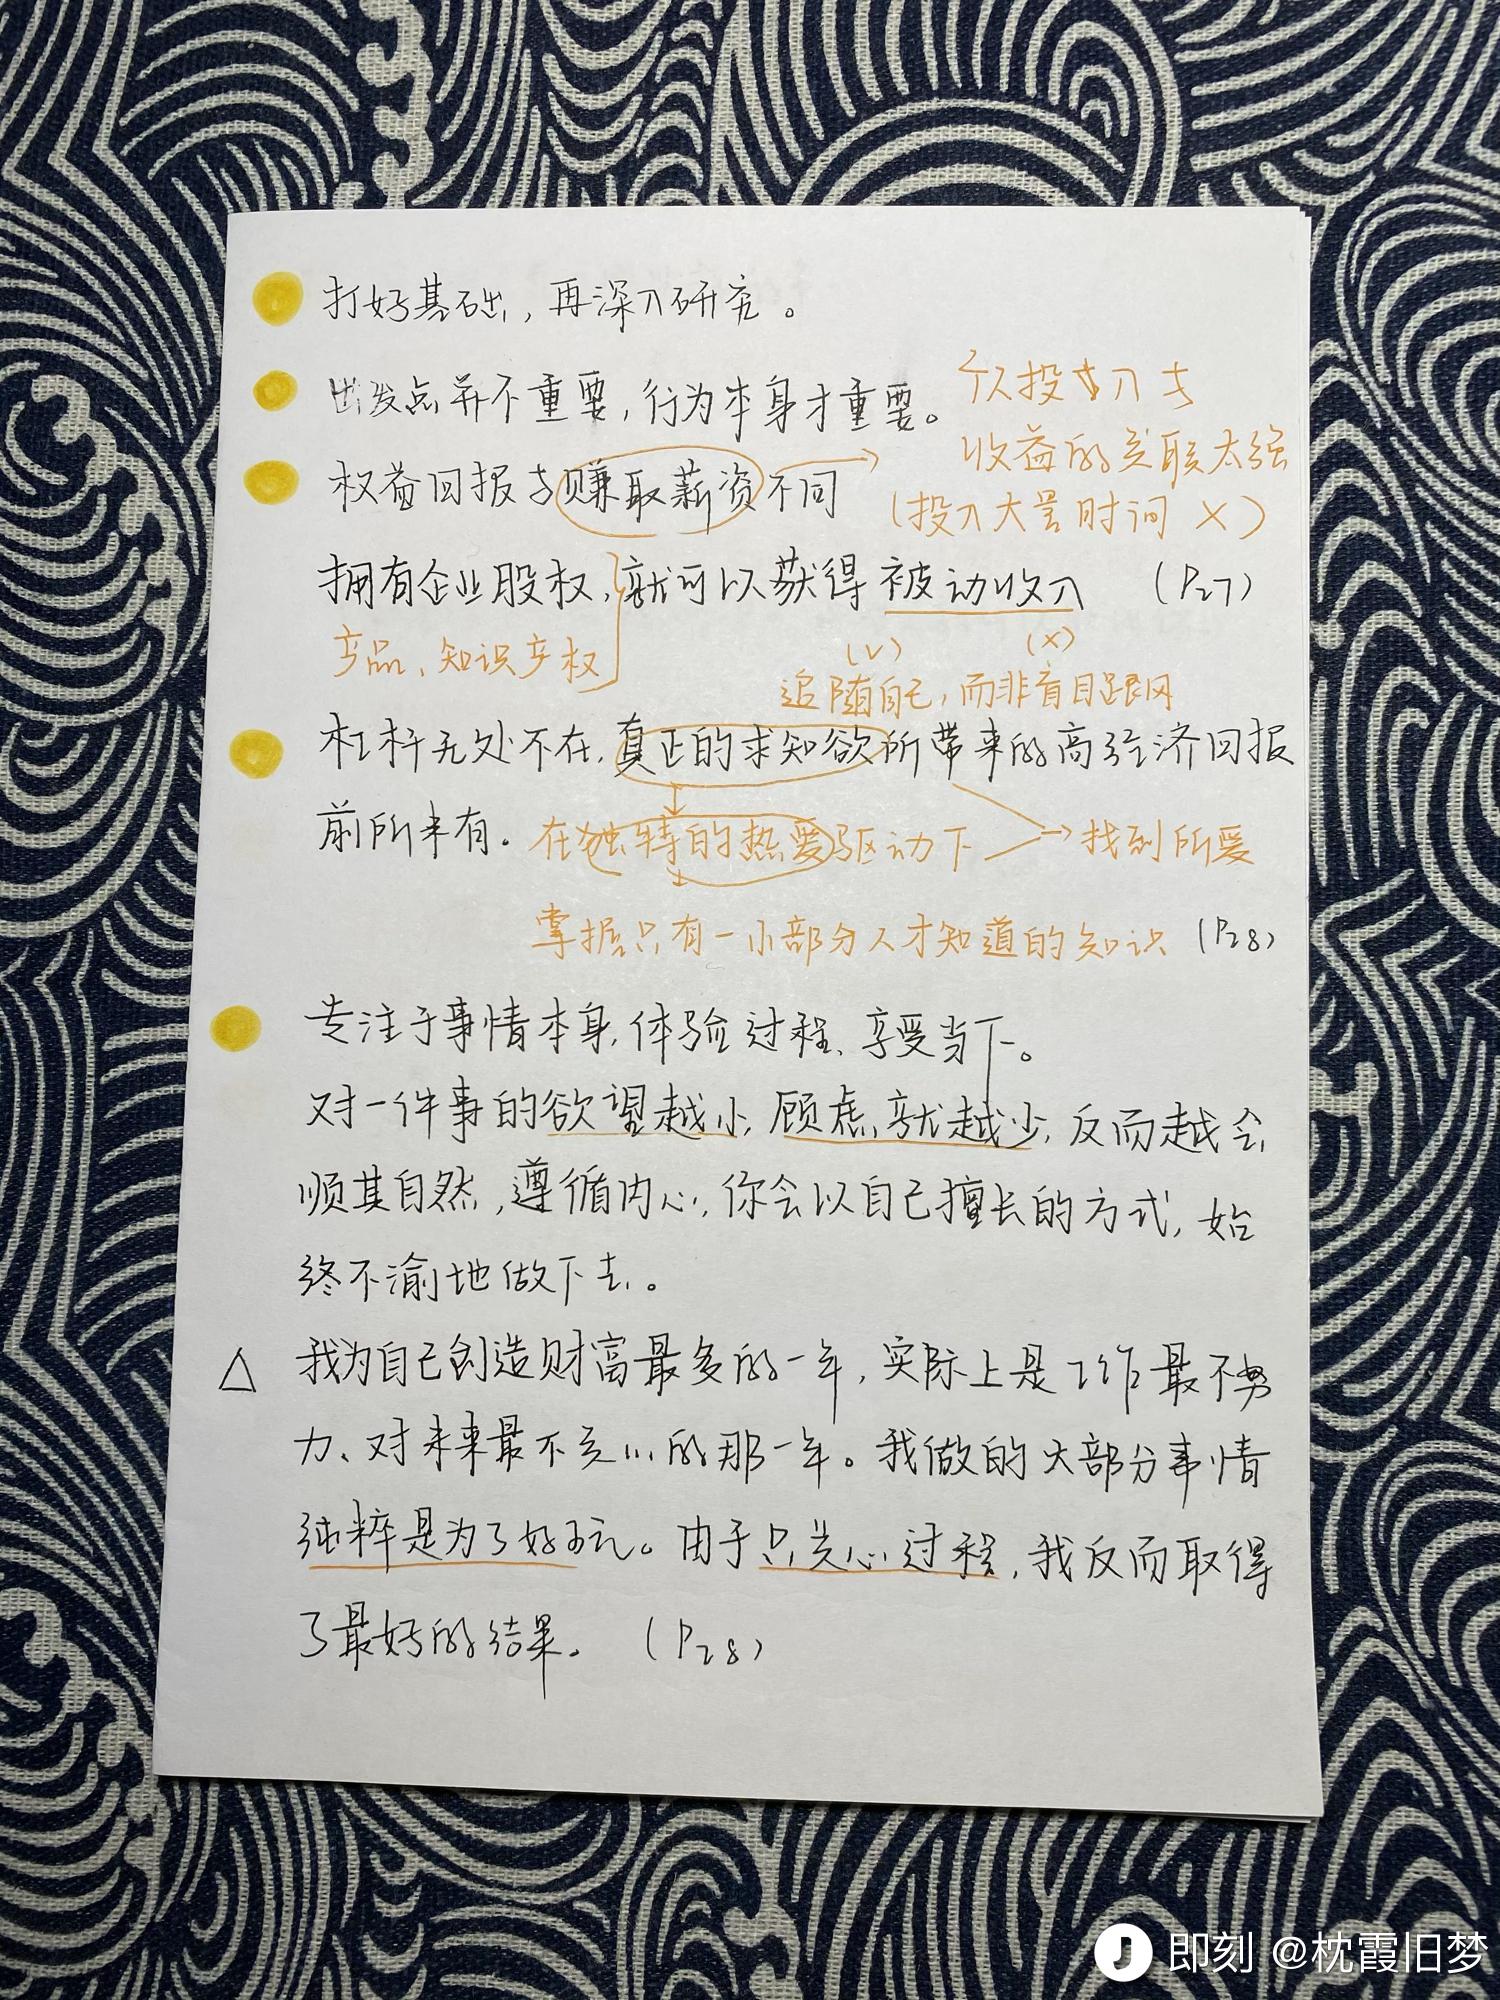 打好基础，再深入研究。
出发点并不重要，行为本身才重要。
个人投入与
收益的关联太强
权益回报与赚取薪资不同
(投入大量时间 X)
拥有企业股权，就可以获得被动收入 (P27)
产品、知识产权
(√) (X)
追随自己，而非盲目跟风
杠杆无处不在，真正的求知欲所带来的高经济回报
前所未有。在独特的热爱驱动下 → 找到所爱
掌握只有一小部分人才知道的知识 (P28)
专注于事情本身，体验过程、享受当下。
对一件事的欲望越小，顾虑就越少，反而越会
顺其自然，遵循内心，你会以自己擅长的方式，始
终不渝地做下去。
△ 我为自己创造财富最多的一年，实际上是工作最不努
力、对未来最不关心的那一年。我做的大部分事情
纯粹是为了好玩。由于只关心过程，我反而取得
了最好的结果。 (P28)
即刻 @枕霞旧梦